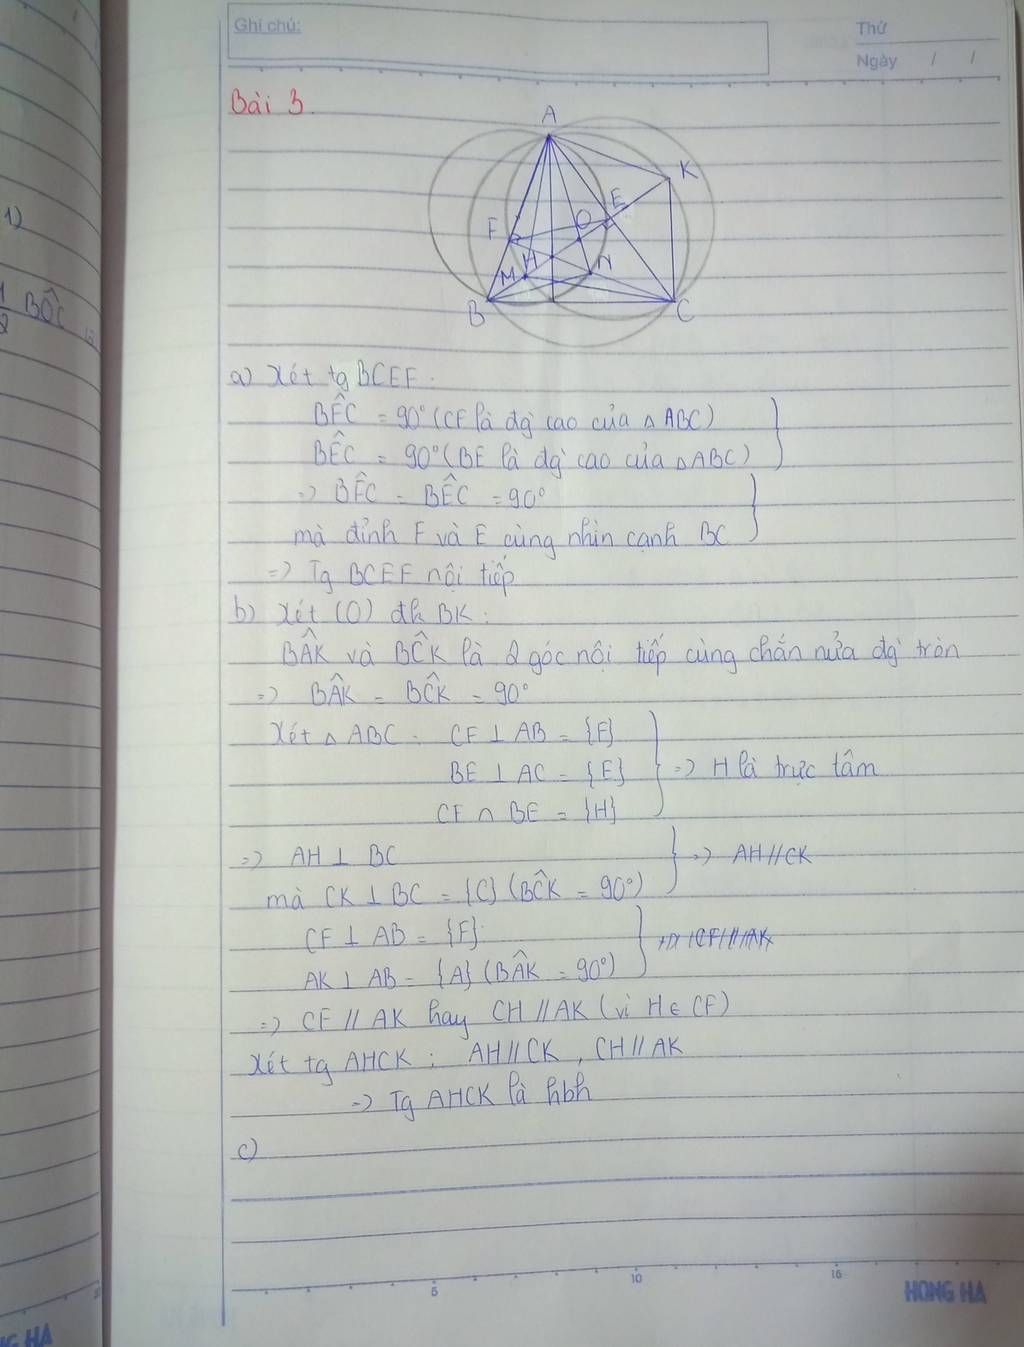 Ghi chú:
Thứ
Ngày / /
Bài 3.
A
K
E
O
F
H
N
M
B
C
1)
1/2 BÔC
a) Xét tg BCEF:
BF̂C = 90° (CF là đg` cao của △ ABC)
BÊC = 90° (BE là đg` cao của △ABC)
=> BF̂C = BÊC = 90°
mà đỉnh F và E cùng nhìn cạnh BC
=> Tg BCEF nội tiếp
b) Xét (O) đk BK:
BÂK và BĈK là 2 góc nội tiếp cùng chắn nửa đg` tròn
=> BÂK = BĈK = 90°
Xét △ ABC: CF ⊥ AB = {F}
BE ⊥ AC = {E} => H là trực tâm
CF ∩ BE = {H}
=> AH ⊥ BC => AH // CK
mà CK ⊥ BC = {C} (BĈK = 90°)
CF ⊥ AB = {F} => CF // AK
AK ⊥ AB = {A} (BÂK = 90°)
=> CF // AK hay CH // AK (vì H ∈ CF)
Xét tg AHCK: AH // CK, CH // AK
=> Tg AHCK là hbh
c)
5 10 15
HONG HA
NG HA